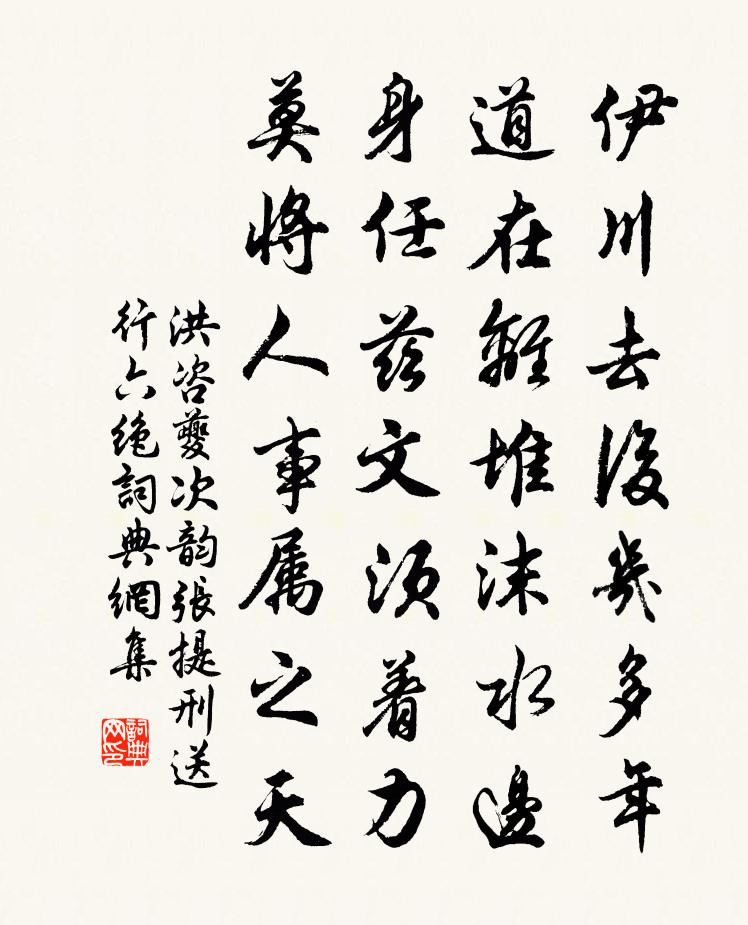 伊川去後幾多年
道在離堆沫水邊
身任茲文須着力
莫將人事属之天
洪咨夔次韵張提刑送
行六绝詞典網集
詞典网印